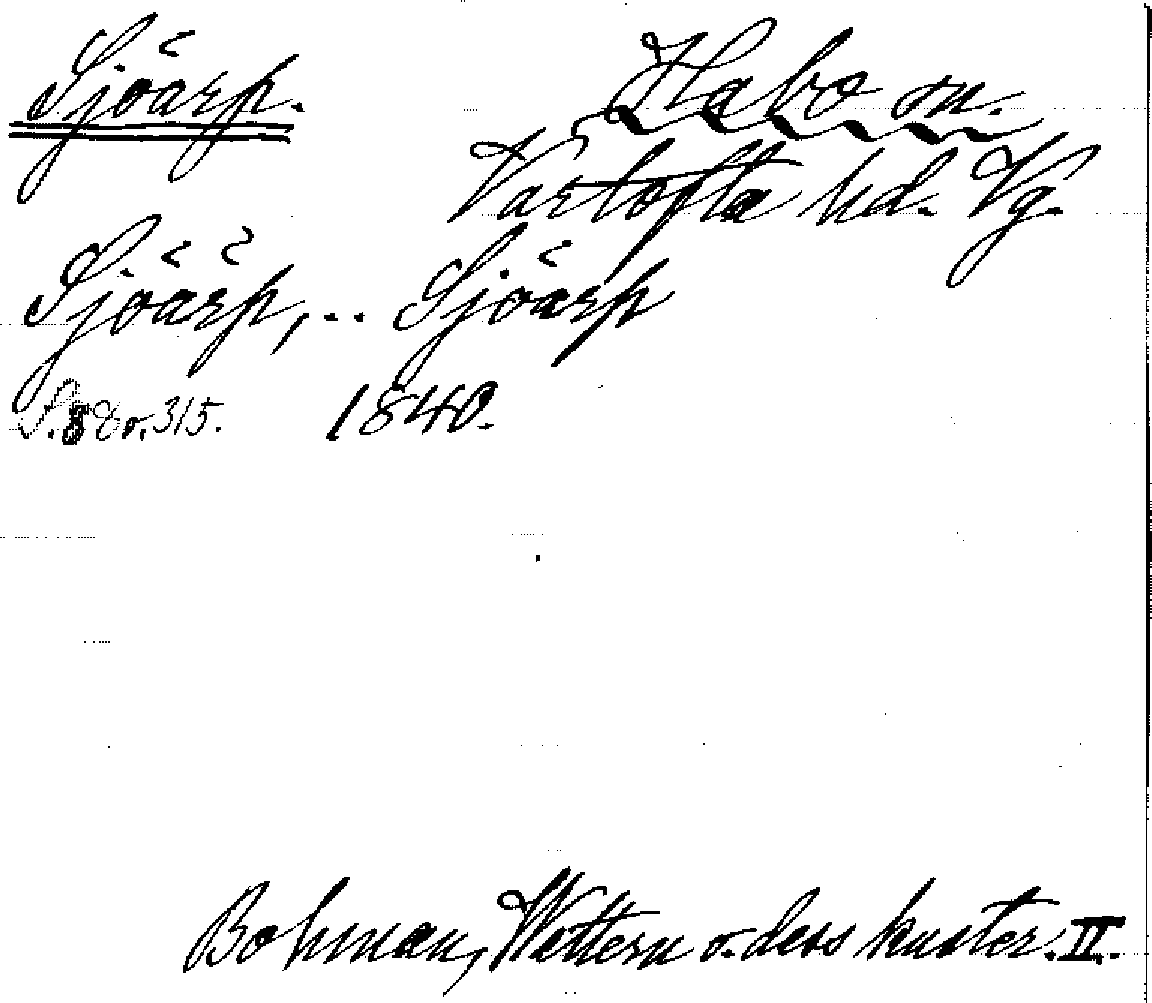 Sjöarp.
Habo sn.
Vartofta hd. Vg.
Sjöärp, .. Sjöarp
S. 88 o. 315. 1840.
Bohman, Wettern o. dess kuster. II.